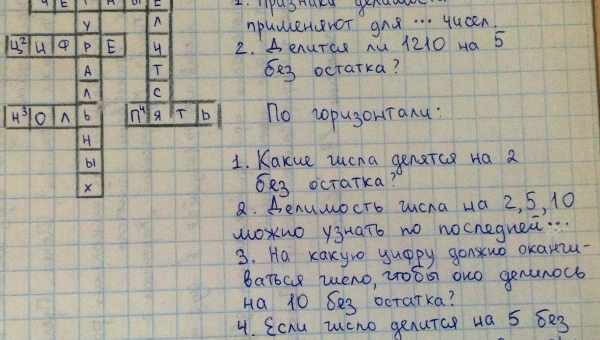 ЧЕТНЫЕ
У Л
Ц2ИФРЕ И
А Т
Л С
Н3ОЛЬ П4ЯТЬ
Н
Ы
Х
1. Признаки делимости
применяют для ... чисел.
2. Делится ли 1210 на 5
без остатка?
По горизонтали:
1. Какие числа делятся на 2
без остатка?
2. Делимость числа на 2, 5, 10
можно узнать по последней...
3. На какую цифру должно оканчи-
ваться число, чтобы оно делилось
на 10 без остатка?
4. Если число делится на 5 без